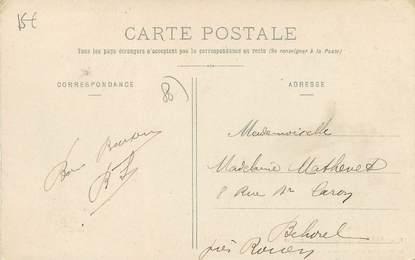 15€
CARTE POSTALE
Tous les pays étrangers n'acceptent pas la correspondance au recto (Se renseigner à la Poste)
CORRESPONDANCE
ADRESSE
Mademoiselle
Bons Baisers
Madeleine Mathevet
8 Rue
près Rouen